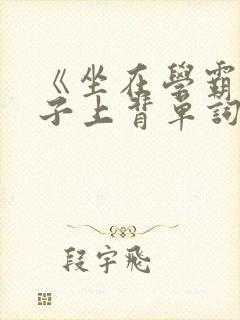 《坐在學霸
子上背單詞
段宇飛